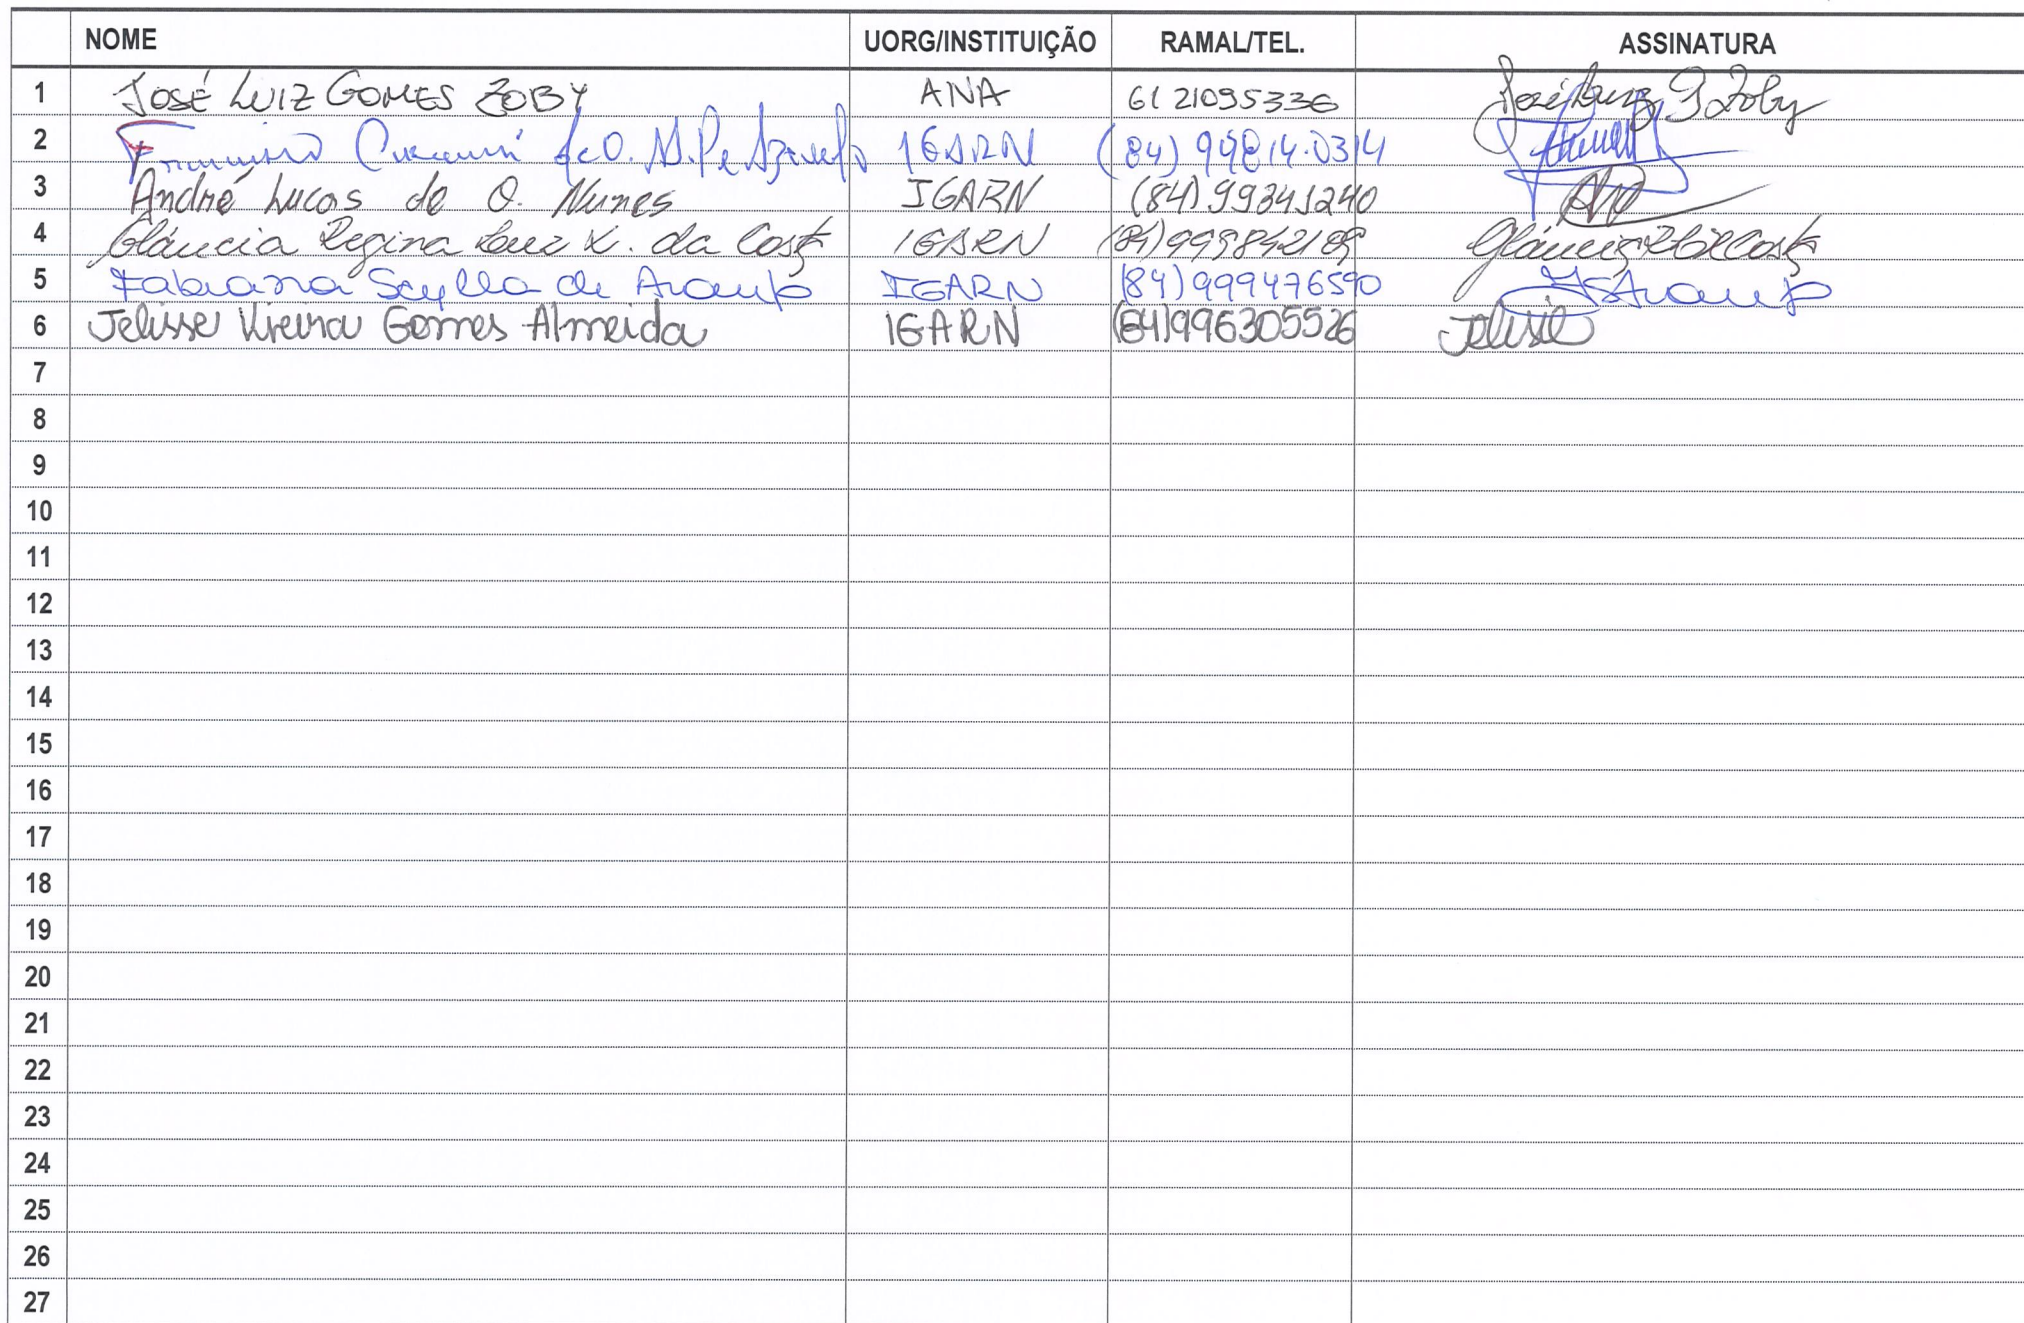 NOME UORG/INSTITUIÇÃO RAMAL/TEL. ASSINATURA
1 JOSÉ LUIZ GOMES ZOBY ANA 61 21095336 José Luiz G Zoby
2 de O. IGARN (84)
3 André Lucas de O. Nunes IGARN (84) 993491240
4 Gláucia Regina Luz X. da Costa IGARN (84)999842189
5 Fabiana Scylla de Araujo IGARN (84)999476590 FSAraujo
6 Jelisse Vieira Gomes Almeida IGARN (84)996305526 Jelisse
7
8
9
10
11
12
13
14
15
16
17
18
19
20
21
22
23
24
25
26
27